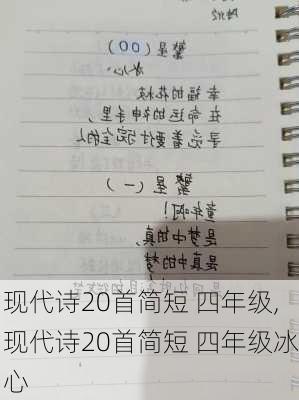 繁星（00）
冰心
幸福的花枝
在命运的神手里，
寻觅着要付与完全的人
繁星（一）
童年啊！
是梦中的真，
是真中的梦
现代诗20首简短 四年级,
现代诗20首简短 四年级冰
心